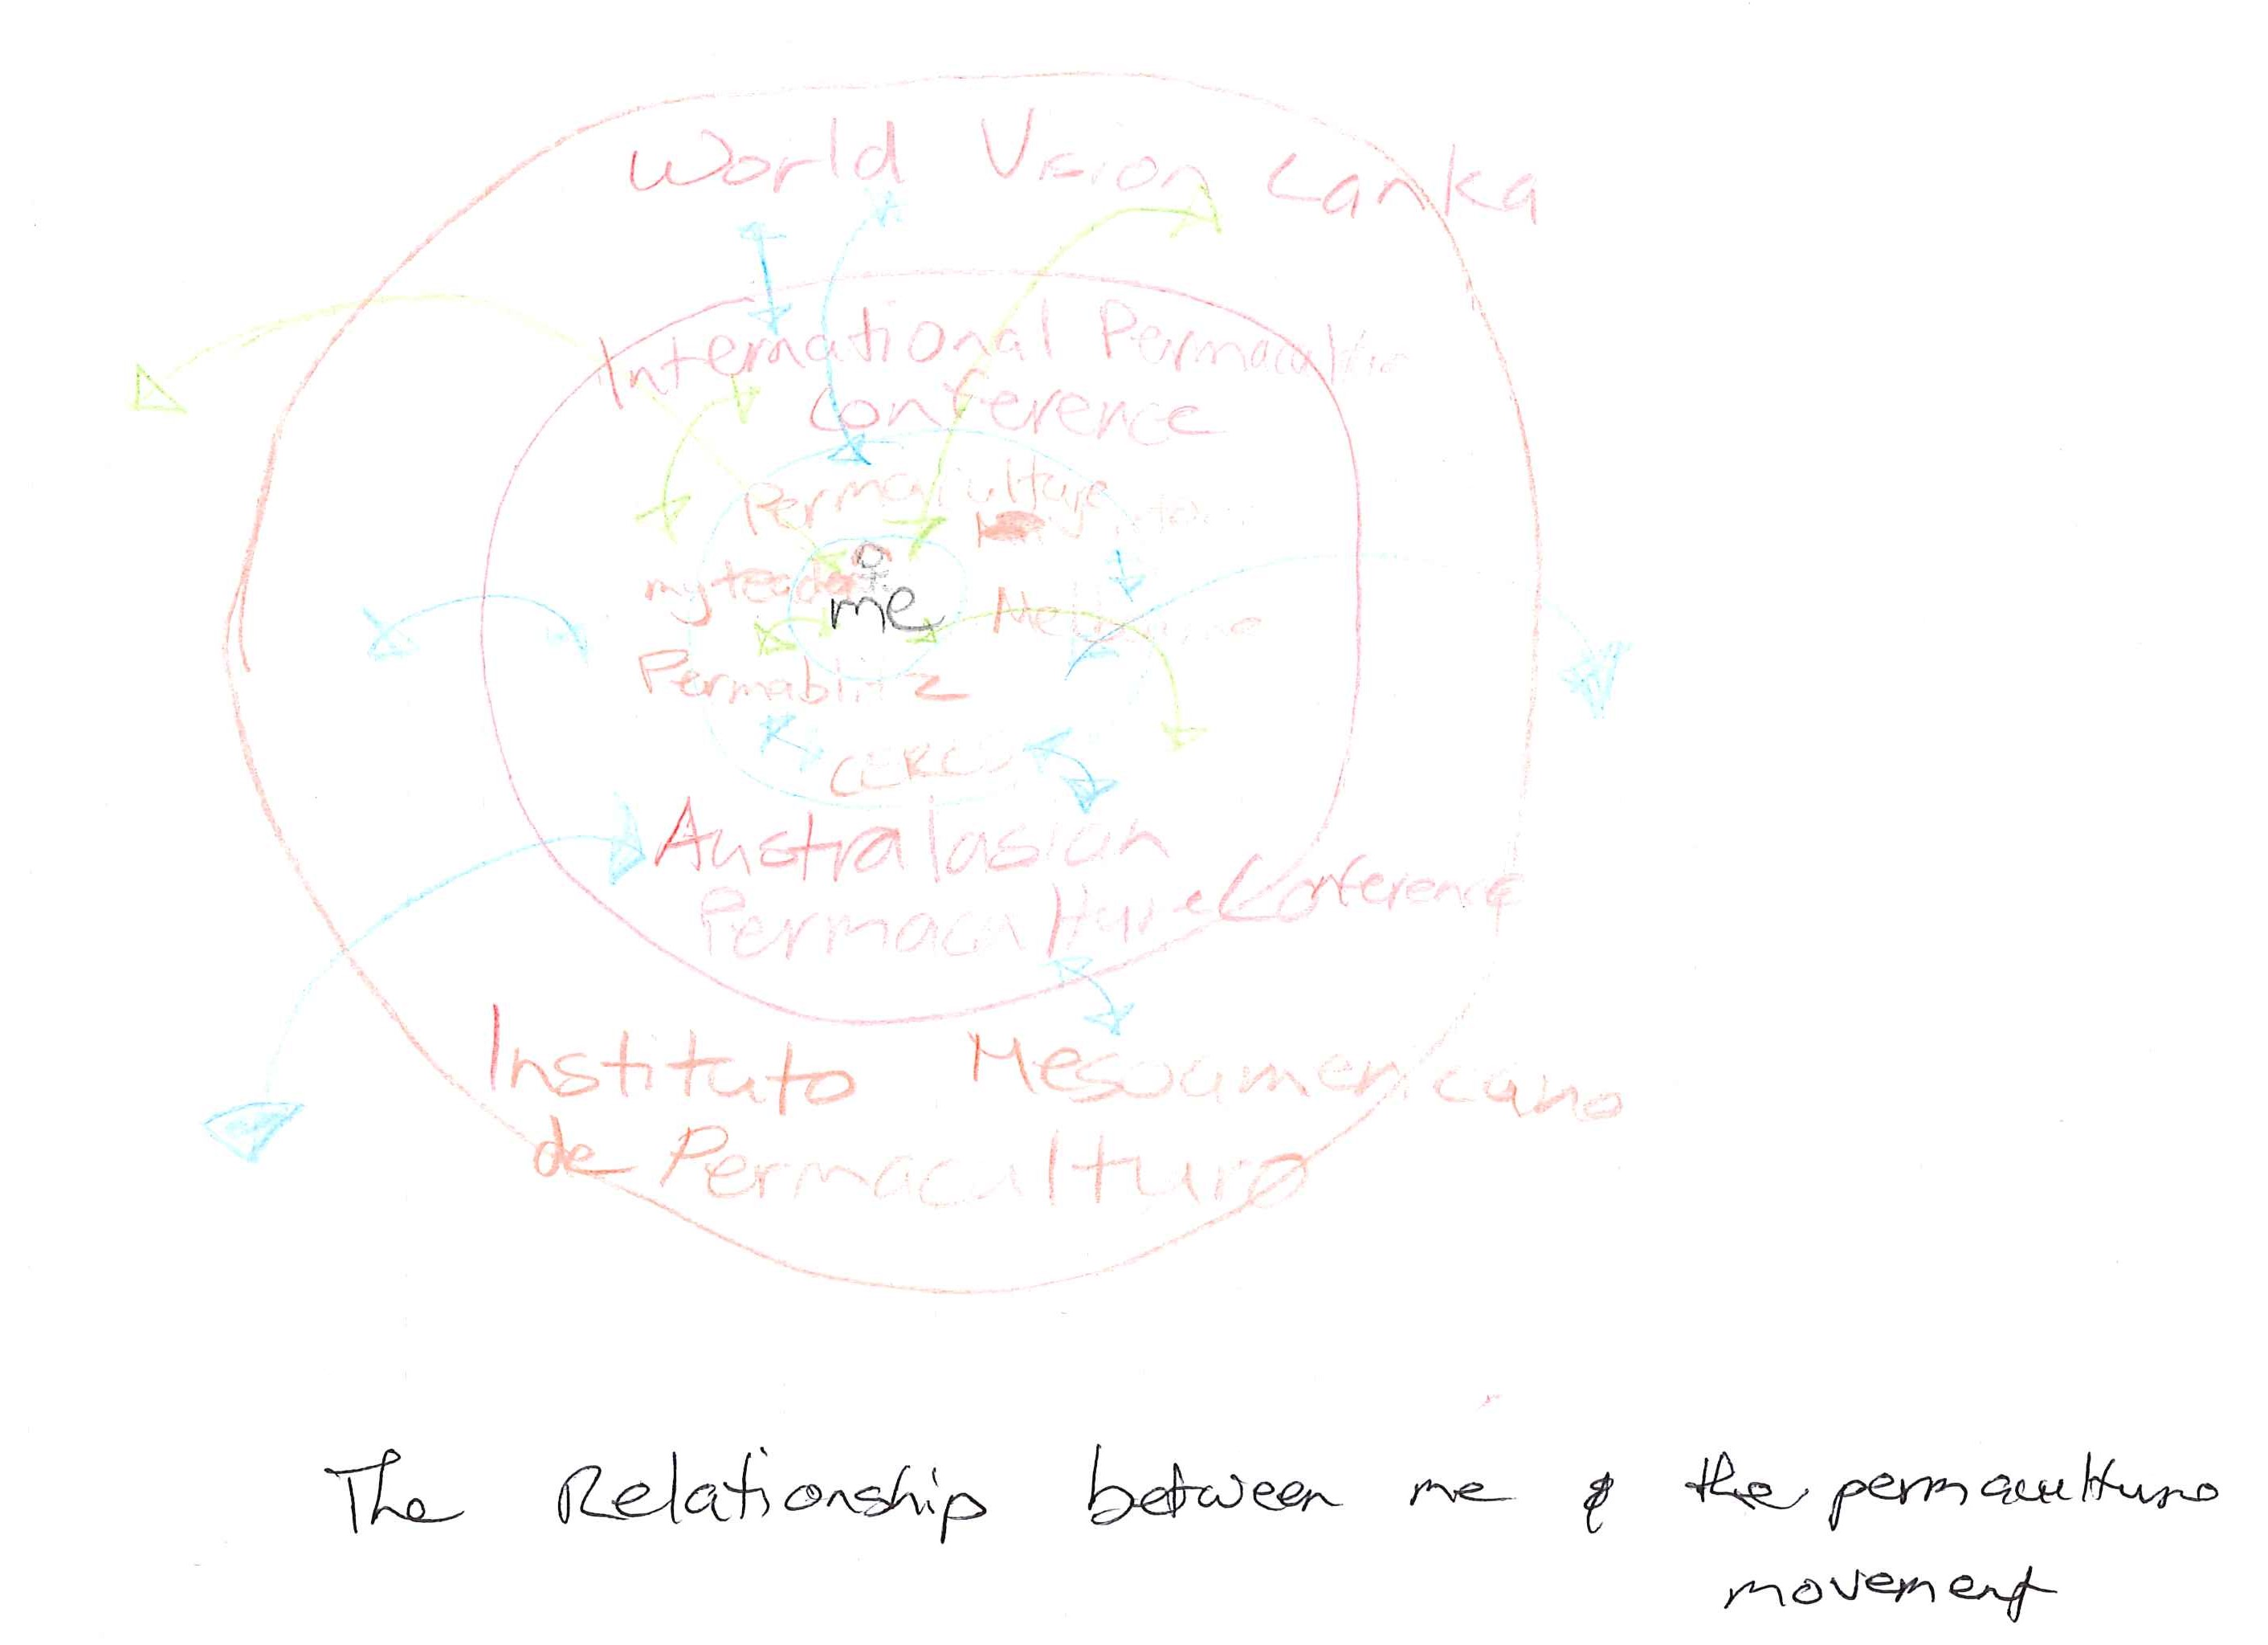 World Vision Lanka
International Permaculture
conference
Permaculture
my teacher
me
Melbourne
Permablitz
CERES
Australasian
Permaculture Conference
Instituto Mesoamericano
de Permacultura
The Relationship between me & the permaculture
movement